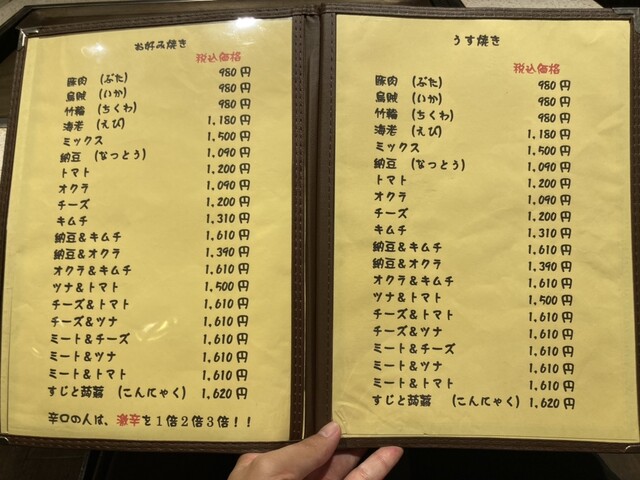 お好み焼き
税込価格
豚肉 (ぶた) 980円
烏賊 (いか) 980円
竹輪 (ちくわ) 980円
海老 (えび) 1,180円
ミックス 1,500円
納豆 (なっとう) 1,090円
トマト 1,200円
オクラ 1,090円
チーズ 1,200円
キムチ 1,310円
納豆&キムチ 1,610円
納豆&オクラ 1,390円
オクラ&キムチ 1,610円
ツナ&トマト 1,500円
チーズ&トマト 1,610円
チーズ&ツナ 1,610円
ミート&チーズ 1,610円
ミート&ツナ 1,610円
ミート&トマト 1,610円
すじと蒟蒻 (こんにゃく) 1,620円
辛口の人は、激辛を1倍2倍3倍!!
うす焼き
税込価格
豚肉 (ぶた) 980円
烏賊 (いか) 980円
竹輪 (ちくわ) 980円
海老 (えび) 1,180円
ミックス 1,500円
納豆 (なっとう) 1,090円
トマト 1,200円
オクラ 1,090円
チーズ 1,200円
キムチ 1,310円
納豆&キムチ 1,610円
納豆&オクラ 1,390円
オクラ&キムチ 1,610円
ツナ&トマト 1,500円
チーズ&トマト 1,610円
チーズ&ツナ 1,610円
ミート&チーズ 1,610円
ミート&ツナ 1,610円
ミート&トマト 1,610円
すじと蒟蒻 (こんにゃく) 1,620円